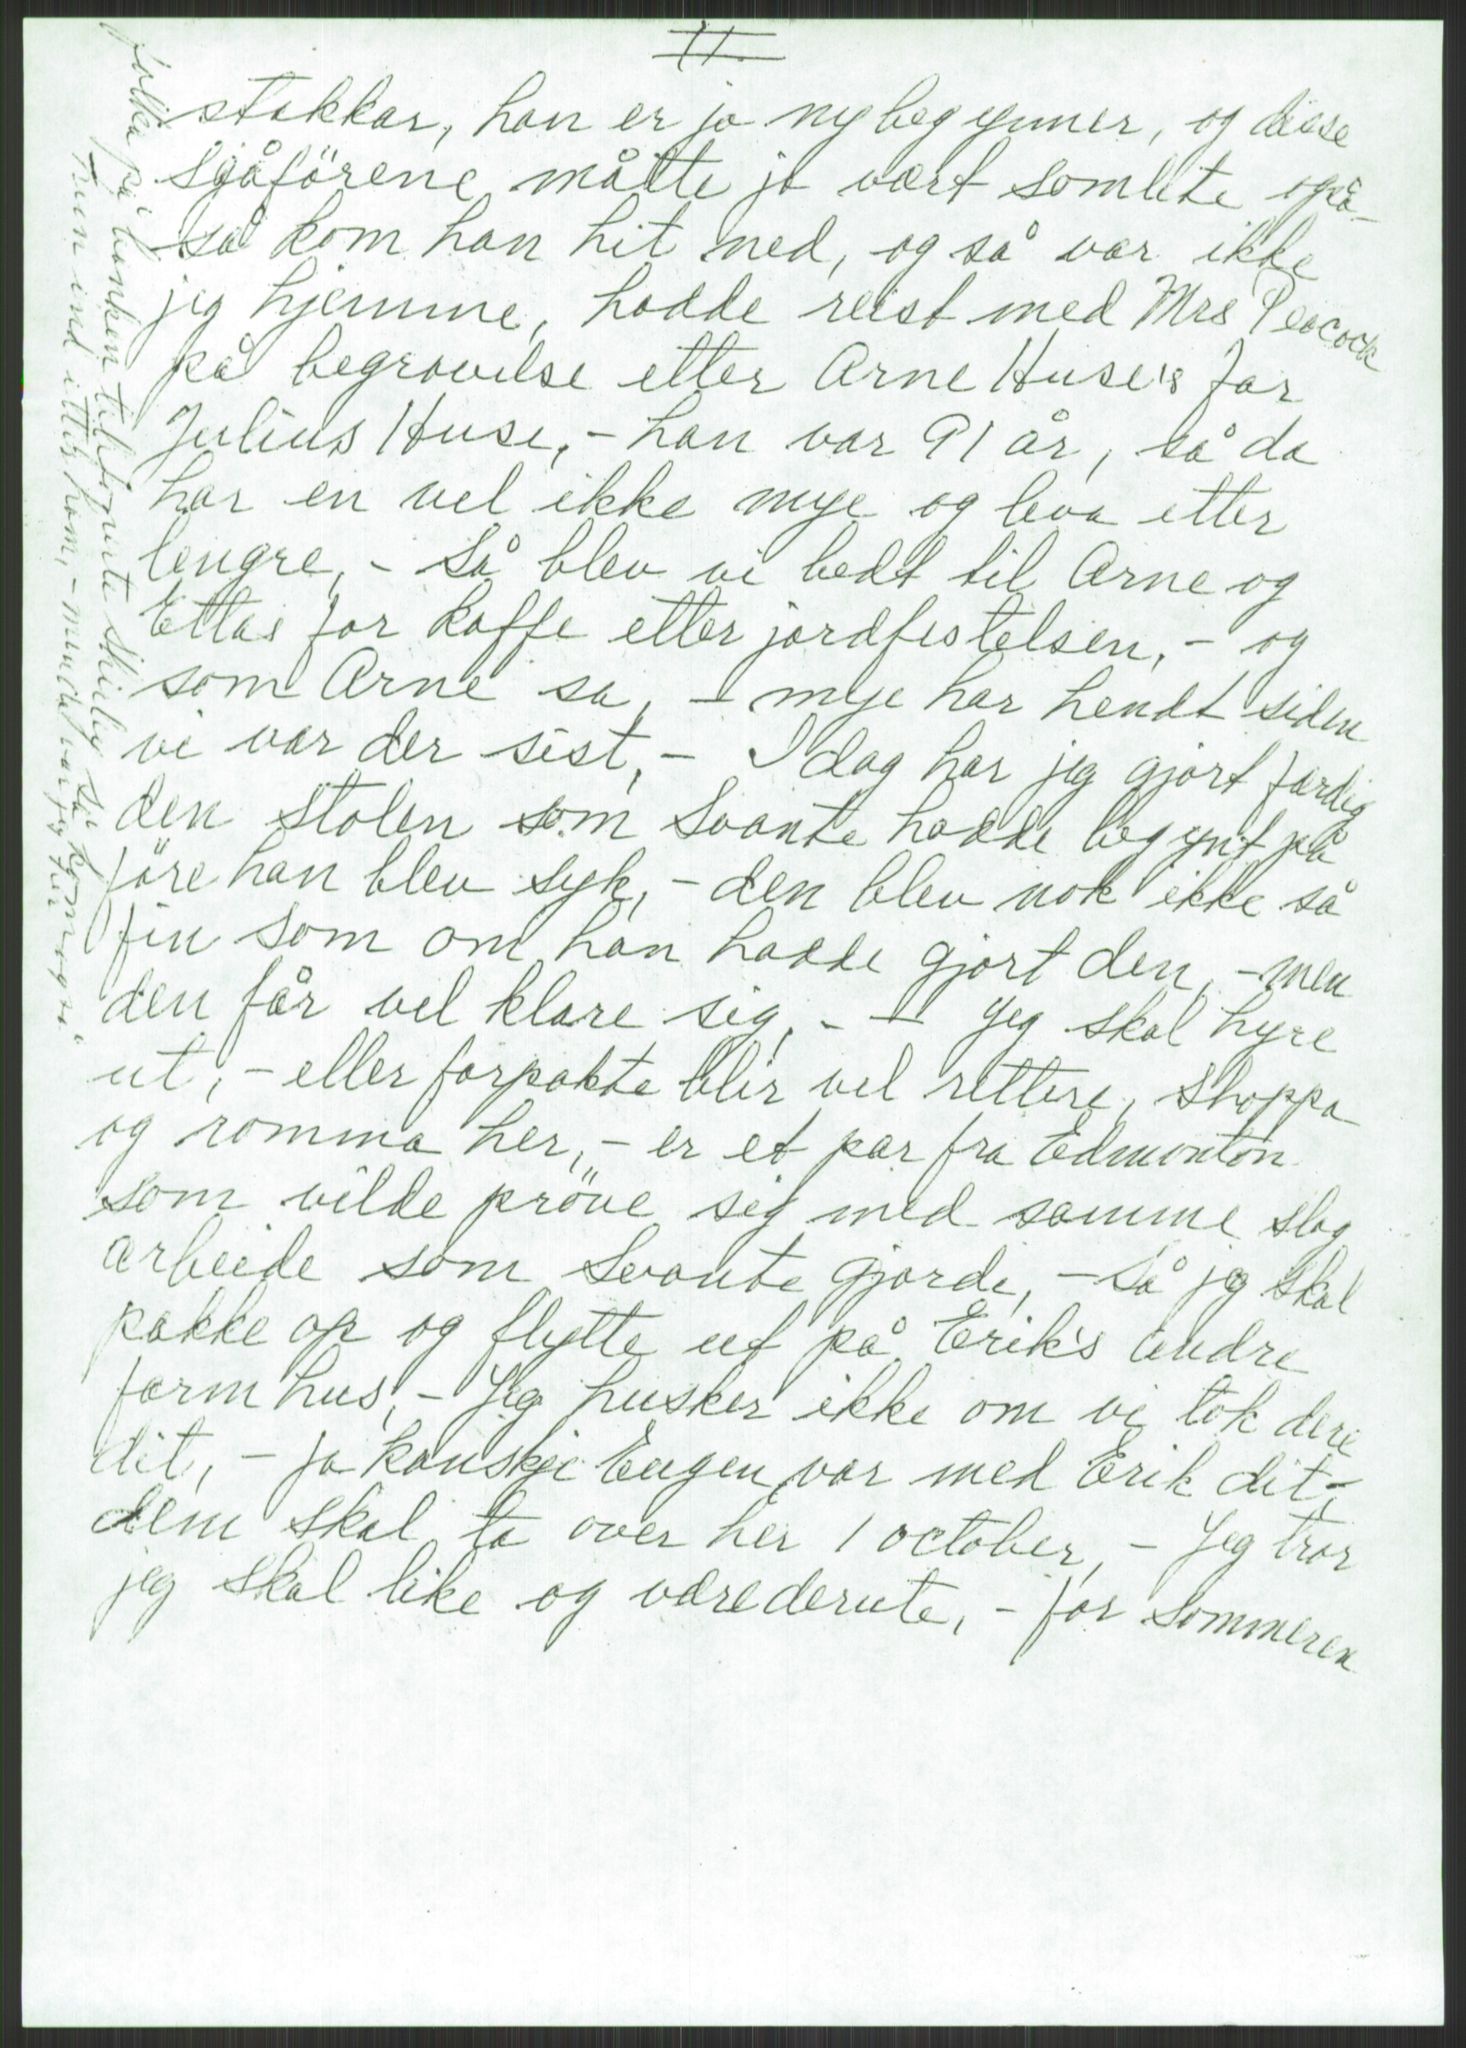 II
stakkar, han er jo nybegynner, og disse
sjåförene måtte jo vært somlete også-
så kom han hit ned, og så var ikke
jeg hjemme, hadde reist med Mrs Peacock
på begravelse etter Arne Huse's far
Julius Huse, - han var 91 år, så da
har en vel ikke mye og leva etter
lengre, - Så blev vi bedt til Arne og
Ettas for kaffe etter jordfestelsen, - og
som Arne sa, - mye har hendt siden
vi var der sist, - I dag har jeg gjort færdig
den stolen som Svante hadde begynt på
före han blev syk, - den blev nok ikke så
fin som om han hadde gjort den, - men
den får vel klare sig, - - Jeg skal hyre
ut, - eller forpakte blir vel rettere, shoppa
og romma her, - er et par fra Edmonton
som vilde pröve sig med samme slag
arbeide som Svante gjorde, - Så jeg skal
pakke op og flytte ut på Erik's andre
farm hus, - Jeg husker ikke om vi tok dere
dit, - ja kanskje Eugen var med Erik dit,-
dem skal ta over her 1 october, - Jeg tror
jeg skal like og være derute, - for sommeren
folka på banken telefonerte Shirley så kom
hun ind etter ham, - men da var jeg